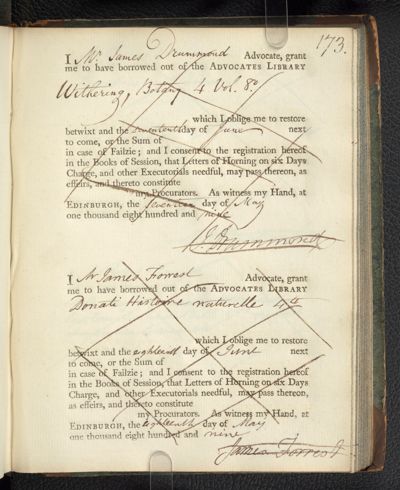 173.
I Mr. James Drummond Advocate, grant
me to have borrowed out of the ADVOCATES LIBRARY
Withering, Botany 4 Vol. 8o
which I oblige me to restore
betwixt and the seventeenth day of June next
to come, or the Sum of
in case of Failzie; and I consent to the registration hereof
in the Books of Session, that Letters of Horning on six Days
Charge, and other Executorials needful, may pass thereon, as
effeirs, and thereto constitute
my Procurators. As witness my Hand, at
EDINBURGH, the seventeen day of May
one thousand eight hundred and nine
J. Drummond
I Mr James Forrest Advocate, grant
me to have borrowed out of the ADVOCATES LIBRARY
Donati Histoire naturelle 4to
which I oblige me to restore
betwixt and the eighteenth day of June next
to come, or the Sum of
in case of Failzie; and I consent to the registration hereof
in the Books of Session, that Letters of Horning on six Days
Charge, and other Executorials needful, may pass thereon,
as effeirs, and thereto constitute
my Procurators. As witness my Hand, at
EDINBURGH, the eighteenth day of May
one thousand eight hundred and nine
James Forrest